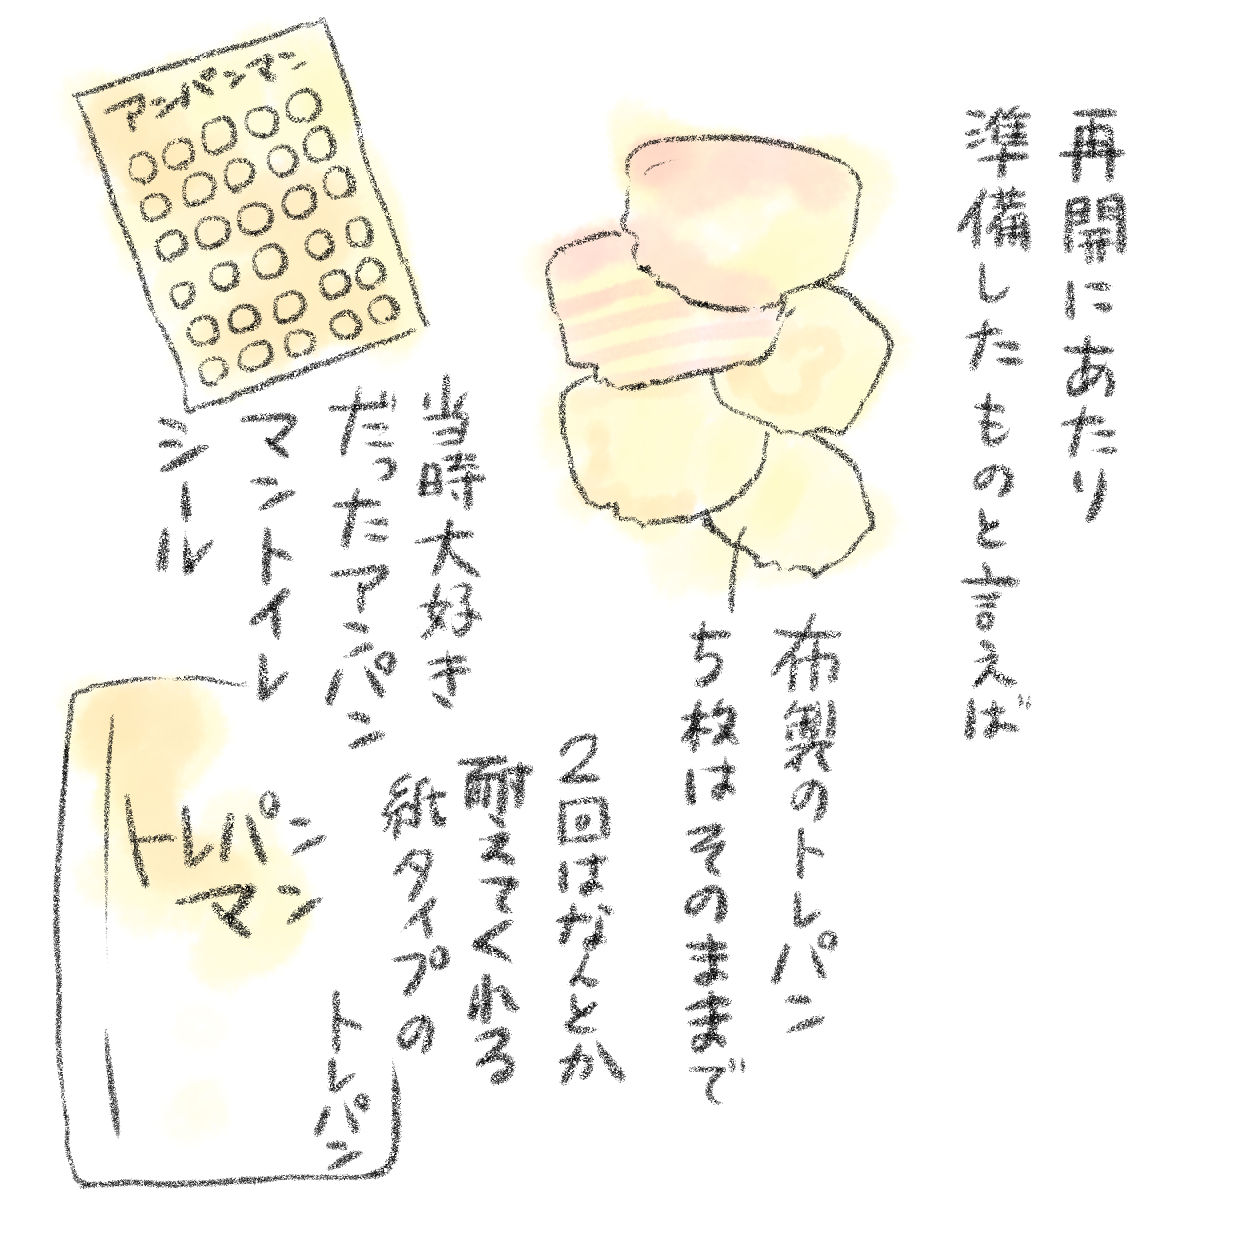 再開にあたり
準備したものと言えば
布製のトレパン
5枚はそのままで
2回はなんとか
耐えてくれる
紙タイプの
トレパン
アンパンマン
当時大好き
だったアンパン
マントイレ
シール
トレパン
マン